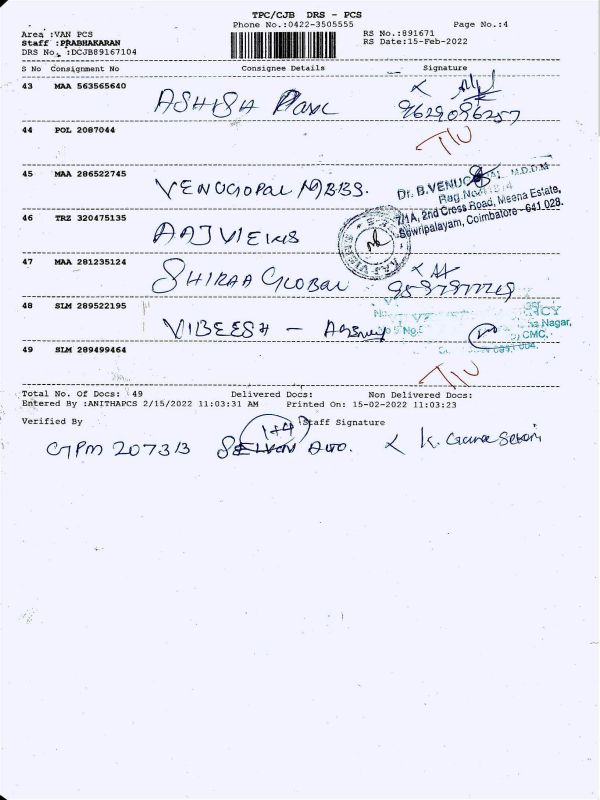 TPC/CJB DRS - PCS
Phone No.:0422-3505555 Page No.:4
Area :VAN PCS RS No.:891671
Staff :PRABHAKARAN RS Date:15-Feb-2022
DRS No. :DCJB89167104
S No Consignment No Consignee Details Signature
43 MAA 563565640
ASHISH
9629096257
44 POL 2087044
T/U
45 MAA 286522745
VENUGOPAL MBBS.
Dr. B.VENUGOPAL M.D.D.M
Reg.No.
7/1A, 2nd Cross Road, Meena Estate,
Sowripalayam, Coimbatore - 641 028.
46 TRZ 320475135
AAJ VIEWS
47 MAA 281235124
SHIRAA GLOBAL
48 SLM 289522195
VIBEESH - Agency
Nagar,
CMC,
49 SLM 289499464
T/U
Total No. Of Docs: 49 Delivered Docs: Non Delivered Docs:
Entered By :ANITHAPCS 2/15/2022 11:03:31 AM Printed On: 15-02-2022 11:03:23
Verified By Staff Signature
1+4
GTPM 207313 SELVAN Auto.